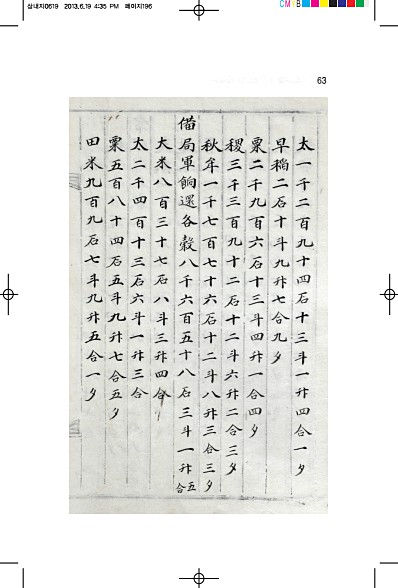 삼내지0619 2013.6.19 4:35 PM 페이지196
CMYB
63
太一千二百九十四石十三斗一升四合一夕
早稻二石十斗九升七合九夕
粟二千九百六石十三斗四升一合四夕
稷三千三百九十二石十二斗六升二合三夕
秋牟一千七百七十六石十二斗八升三合三夕
備局軍餉還各穀八千六百五十八石三斗一升五合
大米八百三十七石八斗三升四合
太二千四百十三石六斗一升三合
粟五百八十四石五斗九升七合五夕
田米九百九石七斗九升五合一夕